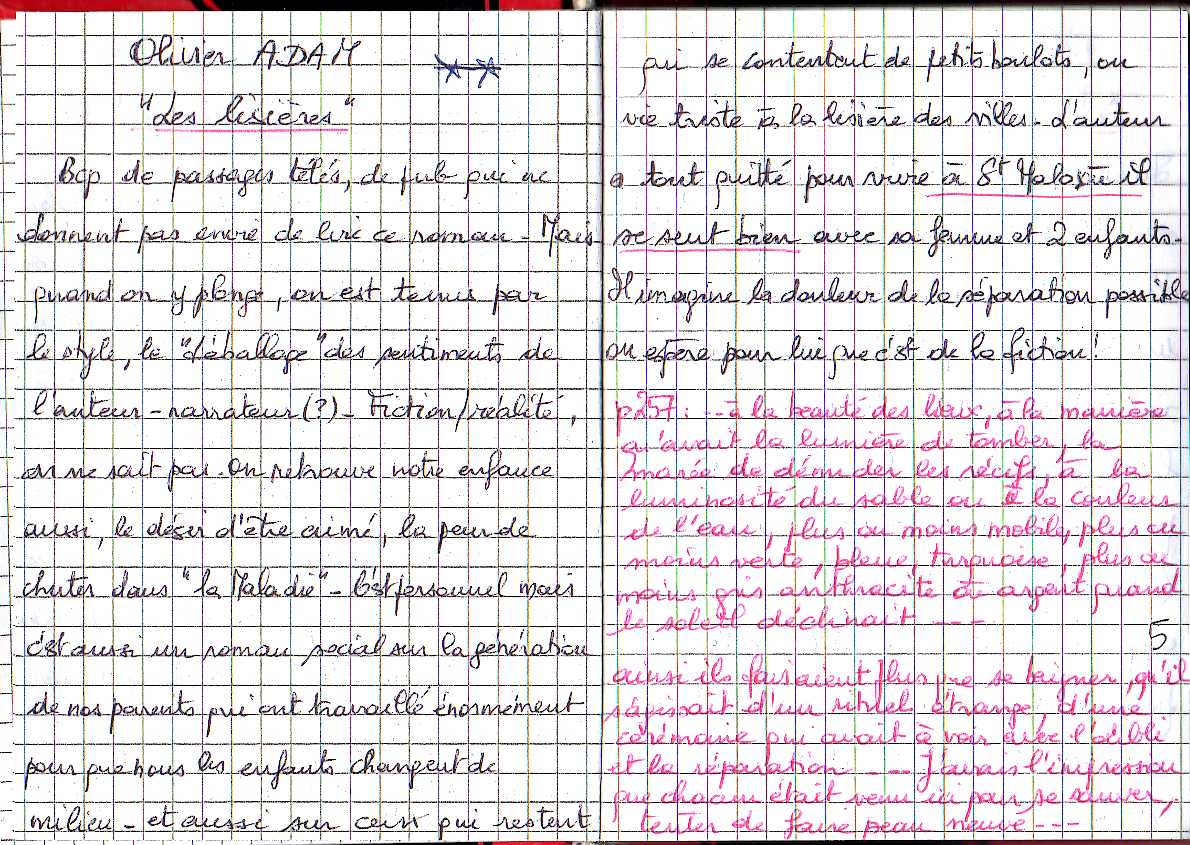 Olivier ADAM
"des lisières"
Bcp de passages télés, de pub qui ne
donnent pas envie de lire ce roman - Mais
quand on y plonge, on est tenus par
le style, le "déballage" des sentiments de
l'auteur - narrateur (?) - Fiction/réalité,
on ne sait pas. On retrouve notre enfance
aussi, le désir d'être aimé, la peur de
chuter dans "la Maladie" - C'est personnel mais
c'est aussi un roman social sur la génération
de nos parents qui ont travaillé énormément
pour que nous les enfants changent de
milieu - et aussi sur ceux qui restent
qui se contentent de petits boulots, ou
vie triste à la lisière des villes - L'auteur
a tout quitté pour vivre à St Malo où il
se sent bien avec sa femme et 2 enfants -
Il imagine la douleur de la séparation possible
on espère pour lui que c'est de la fiction!
p257 : -- à la beauté des lieux, à la manière
qu'avait la lumière de tomber, la
marée de dénuder les récifs, à la
luminosité du sable ou à la couleur
de l'eau, plus ou moins mobile, plus ou
moins verte, bleue, turquoise, plus ou
moins gris anthracite ou argent quand
le soleil déclinait ---
5
ainsi ils faisaient plus que se baigner, qu'il
s'agissait d'un rituel étrange, d'une
cérémonie qui avait à voir avec l'oubli
et la réparation --- J'avais l'impression
que chacun était venu ici pour se sauver,
tenter de faire peau neuve ---